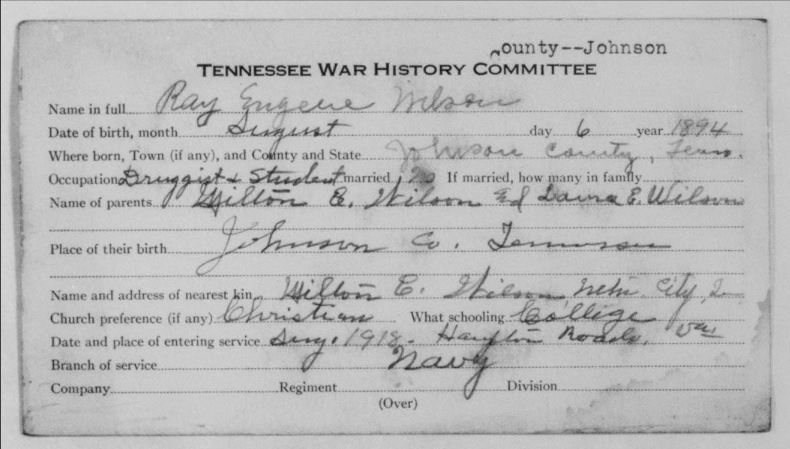 County--Johnson
TENNESSEE WAR HISTORY COMMITTEE
Name in full Ray Eugene Wilson
Date of birth, month August day 6 year 1894
Where born, Town (if any), and County and State Johnson County, Tenn.
Occupation Druggist & Student married, no If married, how many in family
Name of parents Milton E. Wilson and Laura E. Wilson
Place of their birth Johnson Co. Tennessee
Name and address of nearest kin Milton E. Wilson City
Church preference (if any) Christian What schooling College
Date and place of entering service Aug. 1918 - Hampton Roads, Va
Branch of service Navy
Company Regiment Division
(Over)